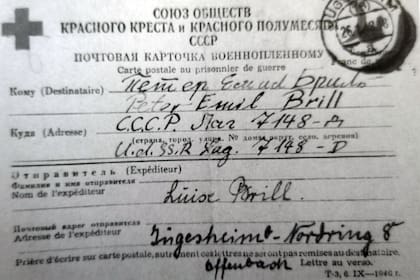 СОЮЗ ОБЩЕСТВ
КРАСНОГО КРЕСТА и КРАСНОГО ПОЛУМЕСЯЦА
СССР
ПОЧТОВАЯ КАРТОЧКА ВОЕННОПЛЕННОМУ
Carte postale au prisonnier de guerre
Franc de
Кому (Destinataire) Петер Емил Бриль
Peter Emil Brill
Куда (Adresse) С.С.С.Р. Лаг 7148-Д
(страна, город, улица, № дома, село, деревня)
U.d.SS.R Lag. 7148-D
Отправитель (Expéditeur)
Фамилия и имя отправителя
Nom de l'expéditeur Luise Brill.
Почтовый адрес отправителя
Adresse de l'expéditeur Jügesheim - Nordring 8
Offenbach
Prière d'écrire sur carte postale, autrement ces lettres ne seront pas remises au destinataire.
Lettre au verso.
Т-3, 6. IX—1946 г.